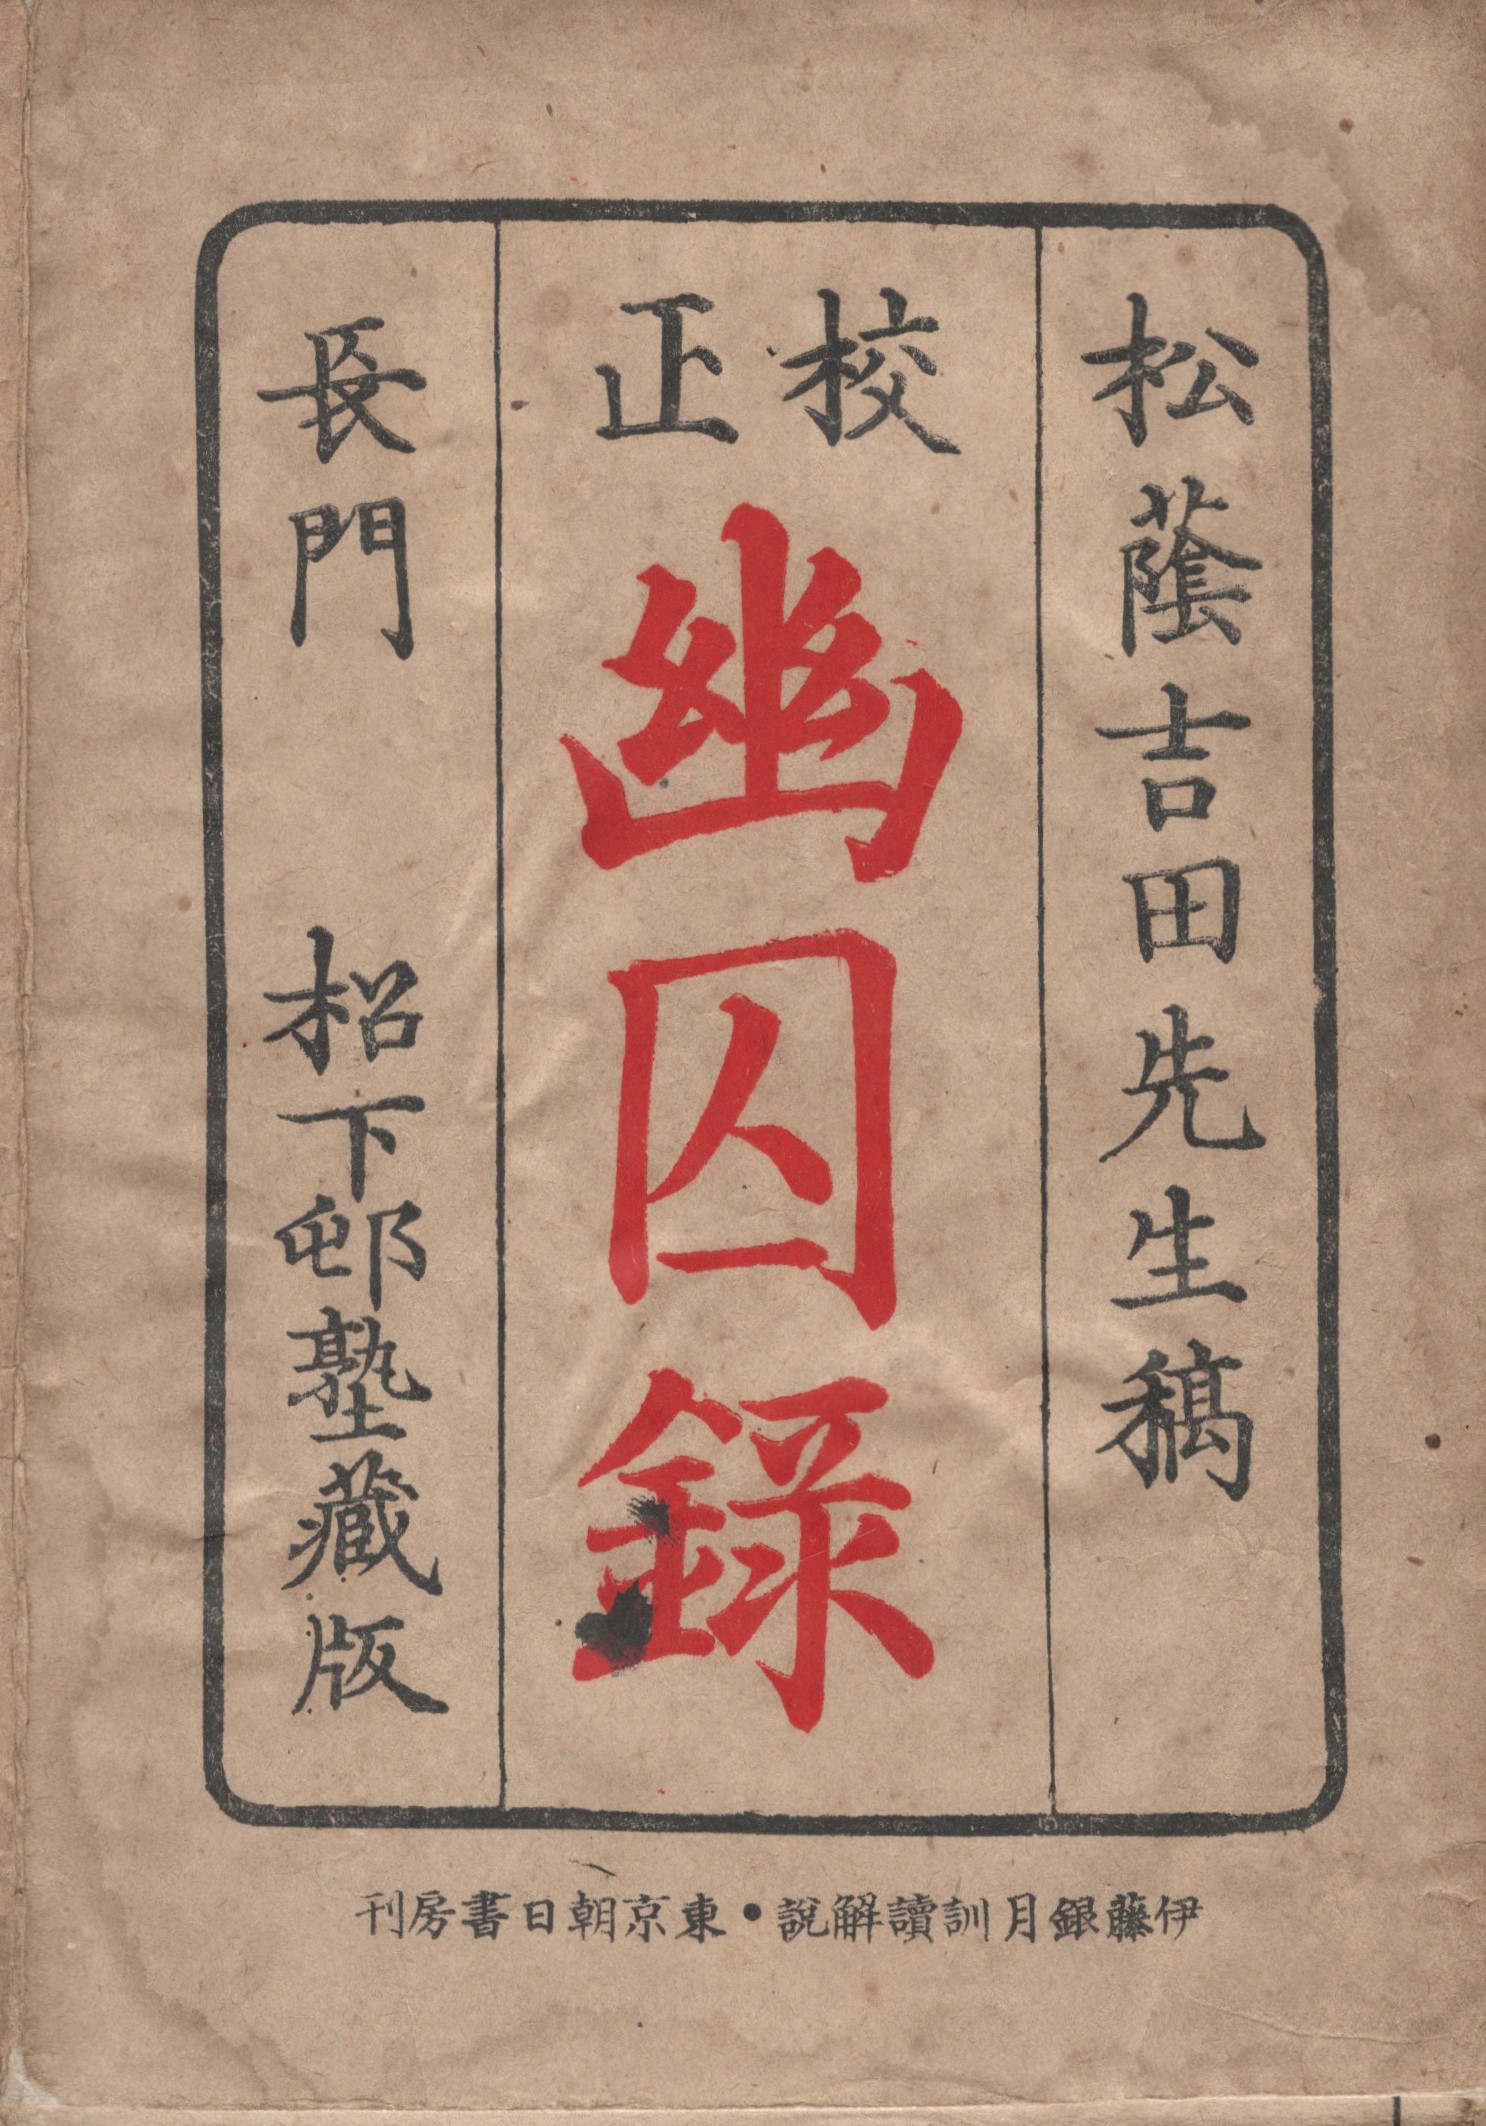 松蔭吉田先生稿
校正
幽囚録
長門 松下邨塾藏版
伊藤銀月訓讀解説・東京朝日書房刊